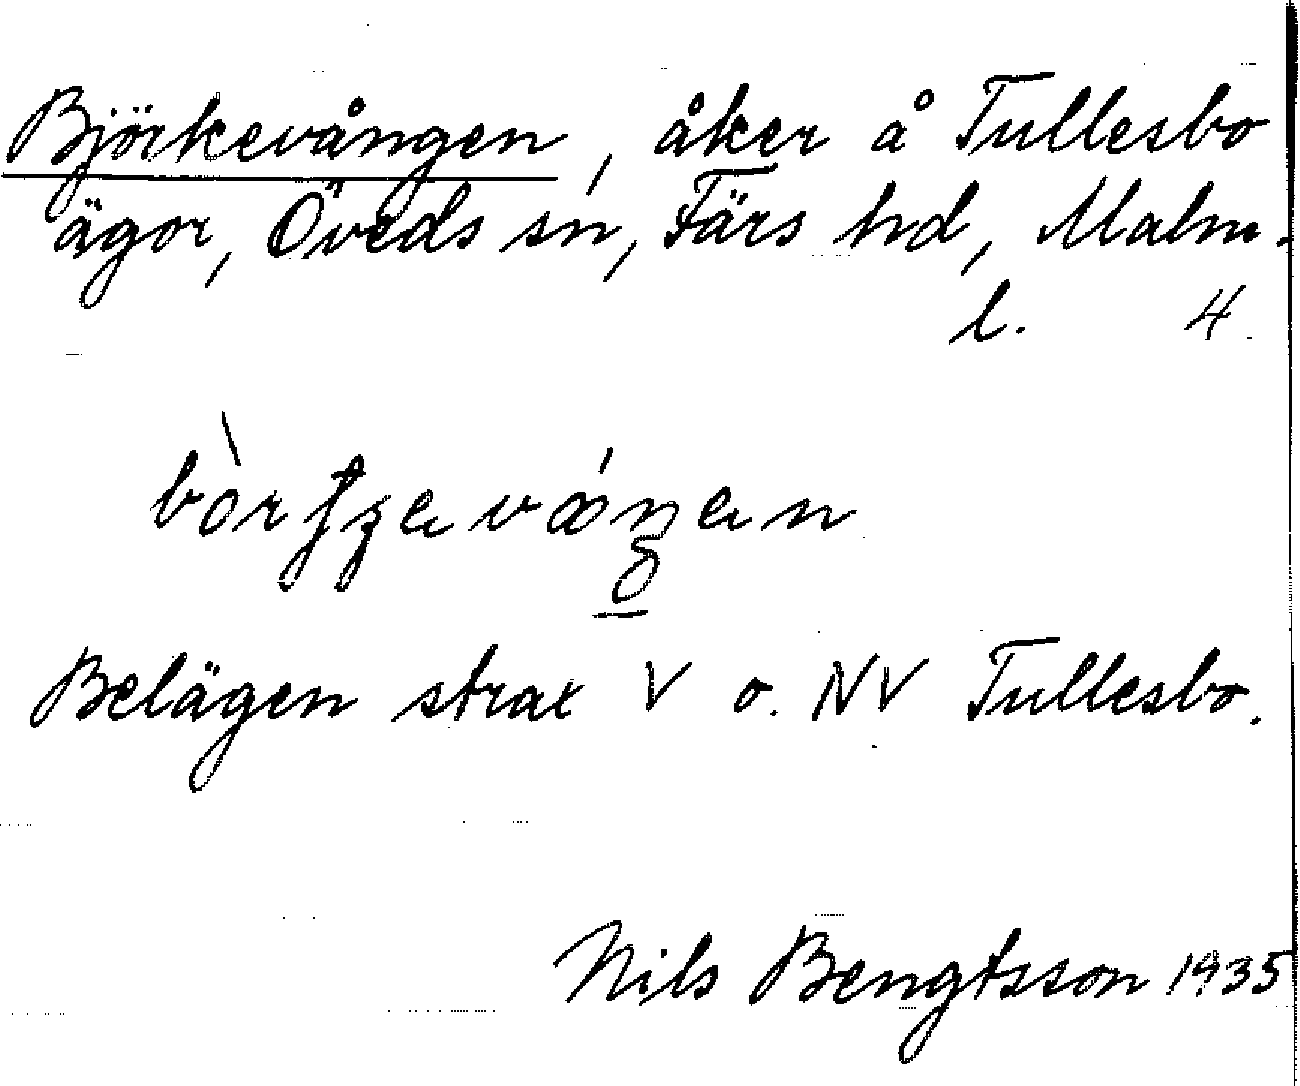 Björkevången, åker å Tullesbo
ägor, Öveds sn, Färs hd, Malm.
l. 4
Belägen strax V o. NV Tullesbo.
Nils Bengtsson 1935